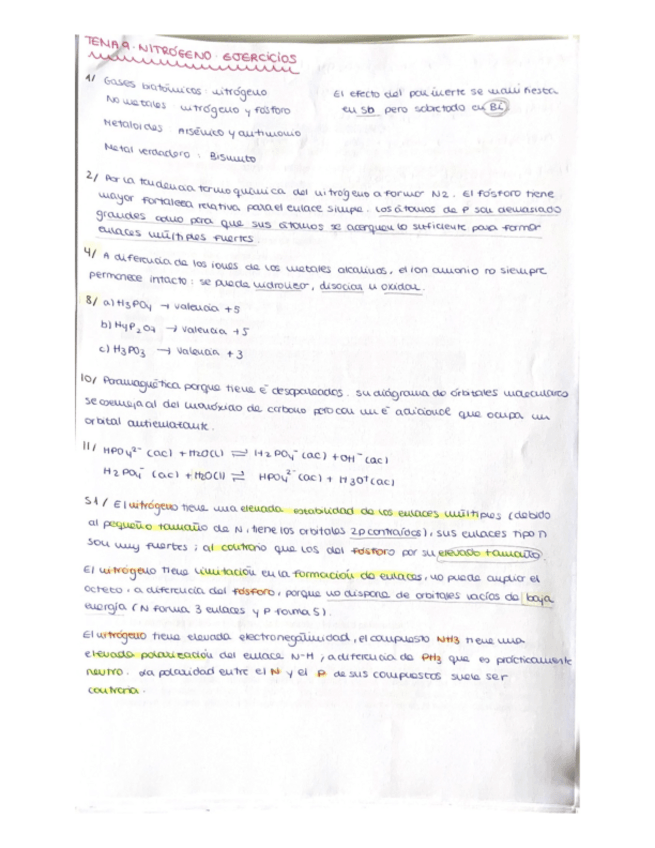 TEMA 9 · NITRÓGENO · EJERCICIOS
1/ Gases biatómicos: nitrógeno
No metales: nitrógeno y fósforo
Metaloides: Arsénico y antimonio
Metal verdadero: Bismuto
El efecto del par inerte se manifiesta
en Sb pero sobretodo en Bi
2/ Por la tendencia termoquímica del nitrógeno a formar N2. El fósforo tiene
mayor fortaleza relativa para el enlace simple. Los átomos de P son demasiado
grandes como para que sus átomos se acerquen lo suficiente para formar
enlaces múltiples fuertes.
4/ A diferencia de los iones de los metales alcalinos, el ion amonio no siempre
permanece intacto: se puede hidrolizar, disociar u oxidar.
8/ a) H3PO4 → valencia +5
b) H4P2O7 → valencia +5
c) H3PO3 → valencia +3
10/ Paramagnética porque tiene e⁻ desapareados. Su diagrama de órbitales moleculares
se asemeja al del monóxido de carbono pero con un e⁻ adicional que ocupa un
orbital antienlatante.
11/ HPO4²⁻ (ac) + H2O(l) ⇌ H2PO4⁻ (ac) + OH⁻ (ac)
H2PO4⁻ (ac) + H2O(l) ⇌ HPO4²⁻ (ac) + H3O⁺ (ac)
S1/ El nitrógeno tiene una elevada estabilidad de los enlaces múltiples (debido
al pequeño tamaño de N, tiene los orbitales 2p contraídos), sus enlaces tipo π
son muy fuertes; al contrario que los del fósforo por su elevado tamaño.
El nitrógeno tiene limitación en la formación de enlaces, no puede ampliar el
octeto, a diferencia del fósforo, porque no dispone de orbitales vacíos de baja
energía (N forma 3 enlaces y P forma 5).
El nitrógeno tiene elevada electronegatividad, el compuesto NH3 tiene una
elevada polarización del enlace N-H, a diferencia de PH3 que es prácticamente
neutro. La polaridad entre el N y el P de sus compuestos suele ser
contraria.